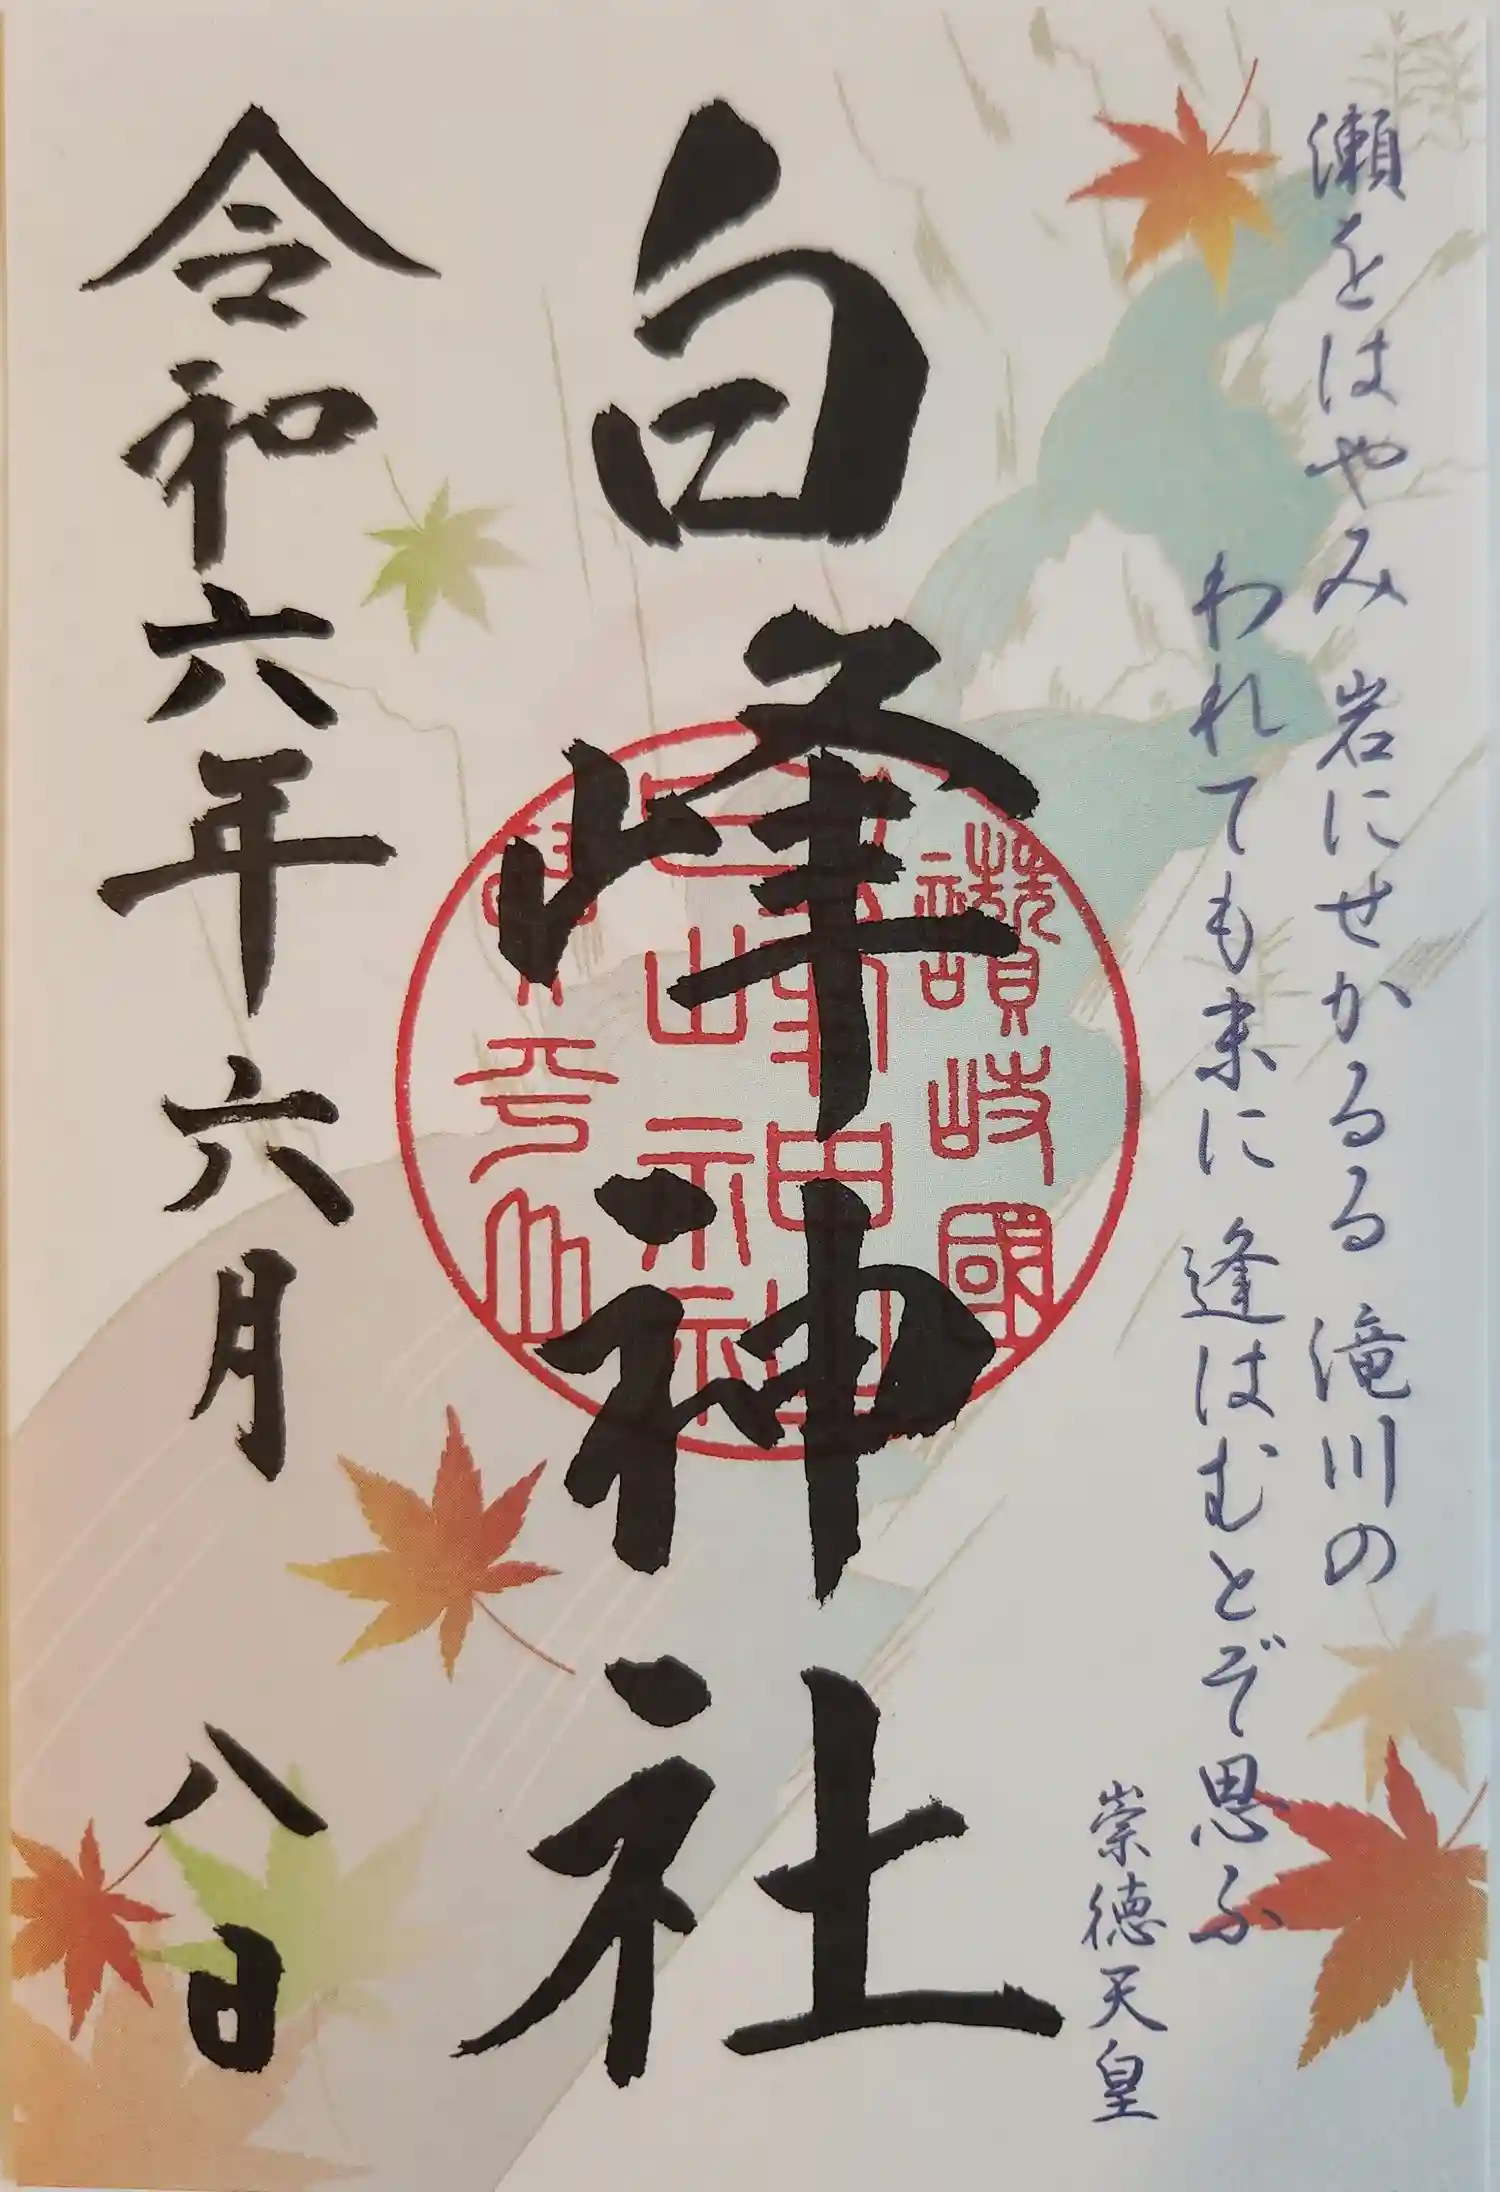 瀬をはやみ 岩にせかるる 滝川の
われても末に 逢はむとぞ思ふ
崇徳天皇
白峰神社
讃岐國
白峯神社
令和六年六月 八日